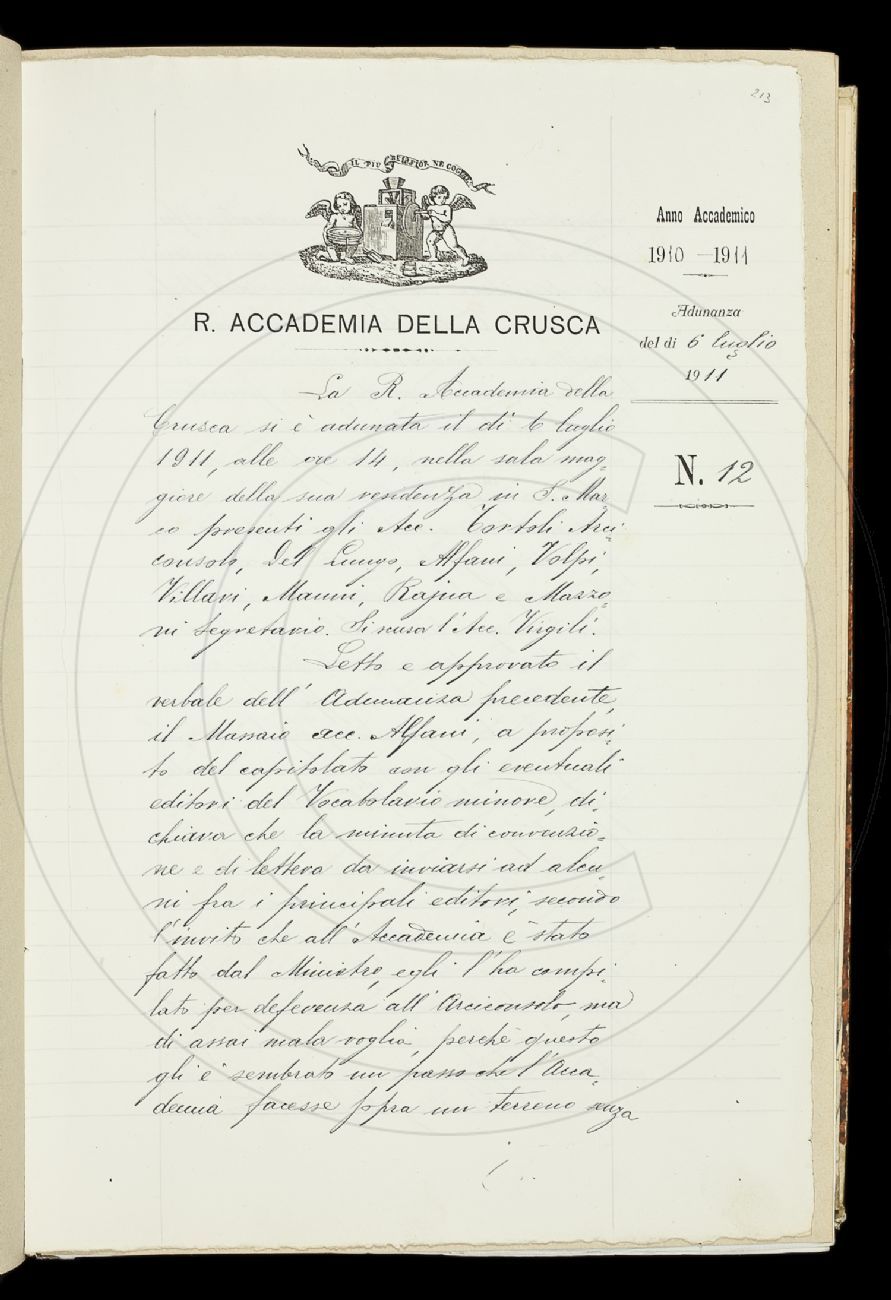 213
IL PIÙ BEL FIOR NE COGLIE
Anno Accademico
1910 — 1911
Adunanza
del dì 6 luglio
1911
N. 12
R. ACCADEMIA DELLA CRUSCA
La R. Accademia della
Crusca si è adunata il dì 6 luglio
1911, alle ore 14, nella sala mag-
giore della sua residenza in S. Mar-
co presenti gli Acc. Tortoli Arci-
consolo, Del Lungo, Alfani, Volpi,
Villari, Manni, Rajna e Mazzo-
ni Segretario. Si scusa l'Acc. Virgili.
Letto e approvato il
verbale dell'Adunanza precedente,
il Massaio acc. Alfani, a proposi-
to del capitolato con gli eventuali
editori del Vocabolario minore, di-
chiara che la minuta di convenzio-
ne e di lettera da inviarsi ad alcu-
ni fra i principali editori, secondo
l'invito che all'Accademia è stato
fatto dal Ministro, egli l'ha compi-
lato per deferenza all'Arciconsolo, ma
di assai mala voglia, perchè questo
gli è sembrato un passo che l'Acca-
demia facesse sopra un terreno senza